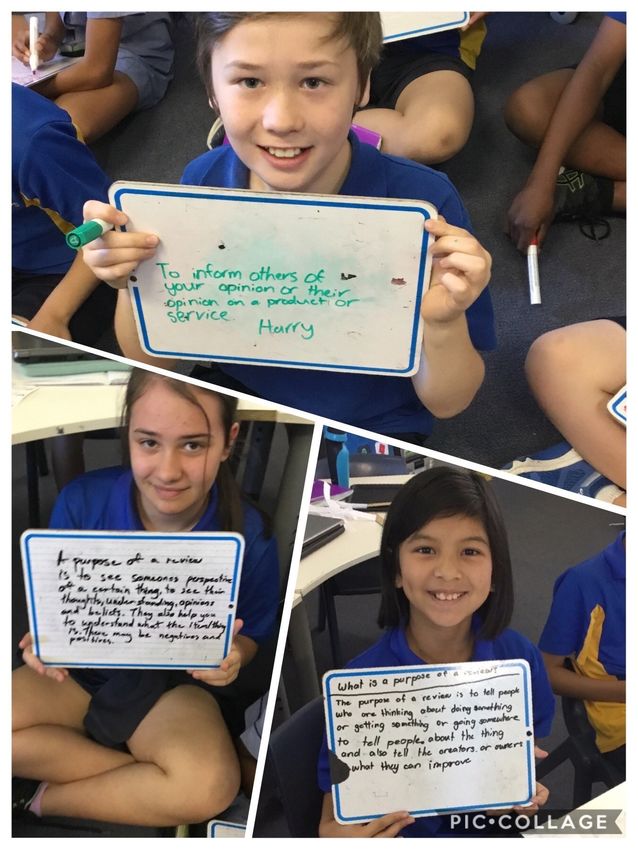 To inform others of
your opinion or their
opinion on a product or
service.
Harry
A purpose of a review
is to see someones perspective
of a certain thing, to see their
thoughts, understanding, opinions
and beliefs. They also help you
to understand what the item/thing
is. There may be negatives and
positives.
What is a purpose of a review?
The purpose of a review is to tell people
who are thinking about doing something
or getting something or going somewhere
to tell people about the thing
and also tell the creators or owners
what they can improve
PIC•COLLAGE